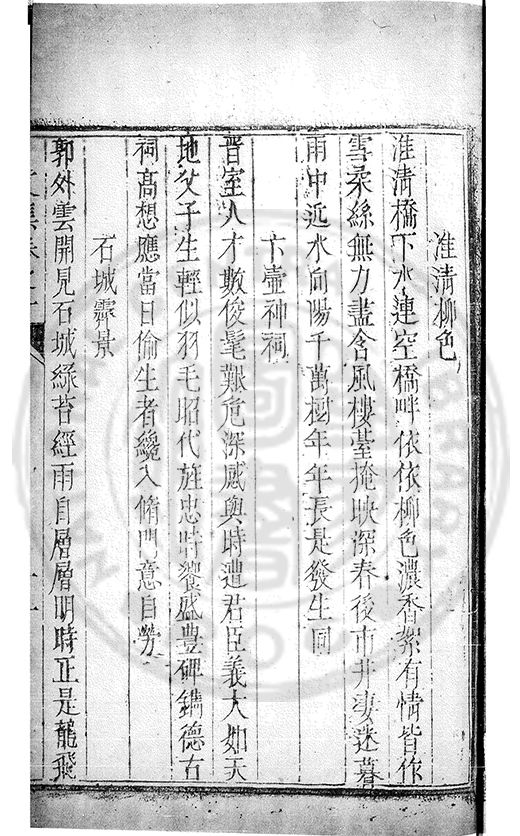 淮清柳色
淮清橋下水連空橋畔依依柳色濃香絮有情皆作
雪柔絲無力盡含風樓臺掩映深春後市井淒迷暮
雨中近水向陽千萬樹年年長是發生同
卞壼神祠
晋室人才數俊髦艱危深慼與時遭君臣義大如天
地父子生輕似羽毛昭代旌忠時饗盛豐碑鐫德古
祠高想應當日偷生者纔入脩門意自勞
石城霽景
郭外雲開見石城綠苔經雨自層層明時正是龍飛